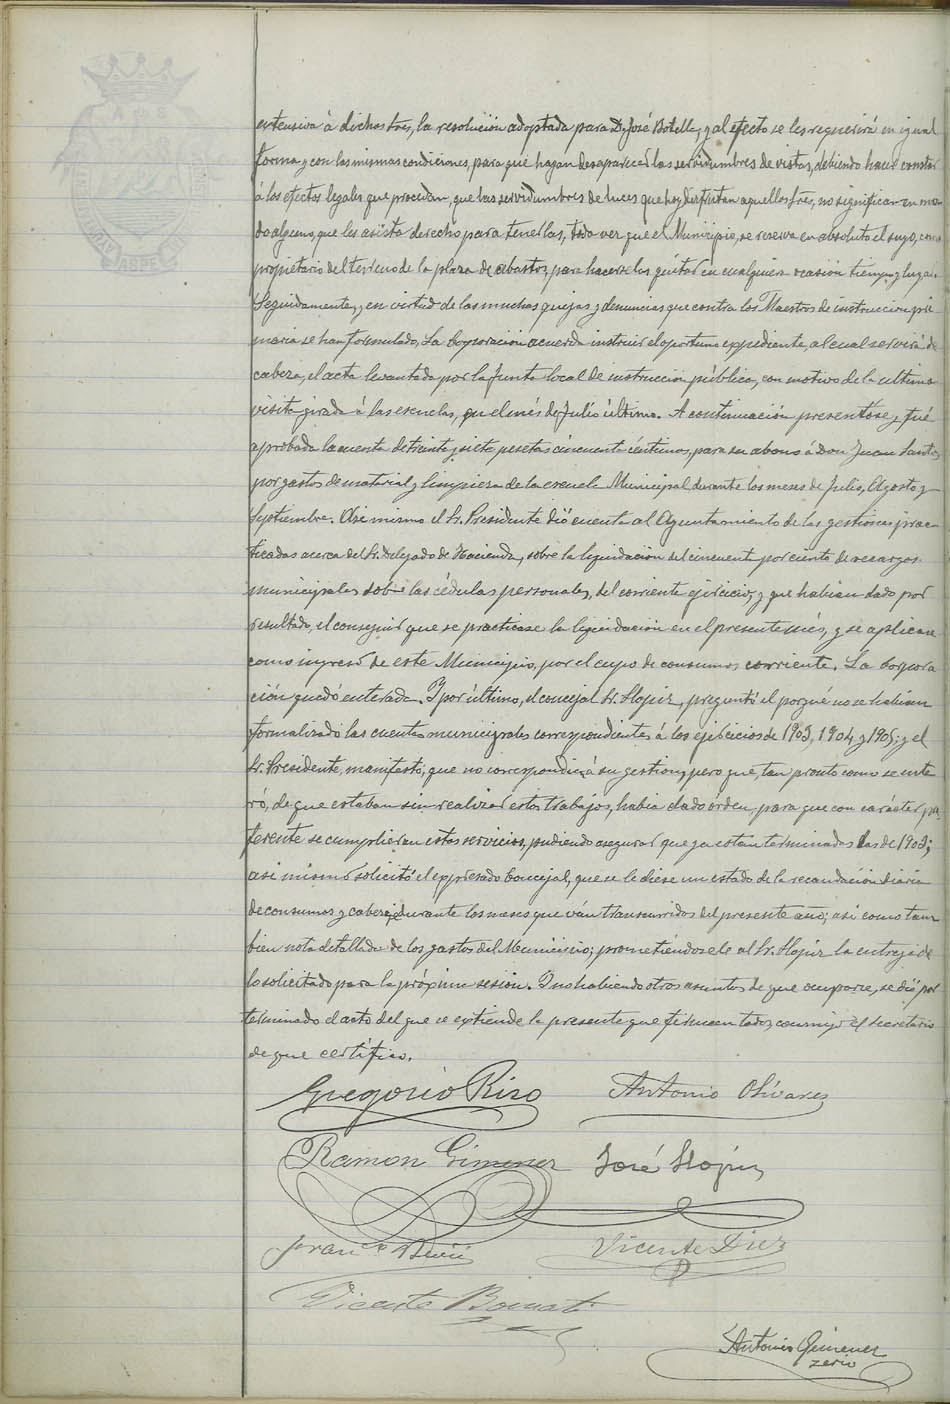 extensiva á dichos tres, la resolución adoptada para D. José Botella, y al efecto se les requerirá en igual
forma y con las mismas condiciones, para que hagan desaparecer las servidumbres de vistas, debiendo hacer constar
á los efectos legales que procedan, que las servidumbres de luces que hoy disfrutan aquellos tres, no significan en mo
do alguno, que les asista derecho para tenerlas, toda vez que el Municipio, se reserva en absoluto el suyo, como
propietario del terreno de la plaza de abastos, para hacerselas quitar en cualquiera ocasión tiempo y lugar.
Seguidamente, y en virtud de las muchas quejas y denuncias que contra los Maestros de instruccion pri
maria se han formulado, La Corporación acuerda instruir el oportuno expediente, al cual servirá de
cabeza, el acta levantada por la Junta local de instrucción pública, con motivo de la ultima
visita girada á las escuelas, en el més de Julio último. A continuación presentóse y fué
aprobada la cuenta de treinta y siete pesetas cincuenta céntimos, para su abono á Don Juan Santos
por gastos de material y limpieza de la escuela Municipal durante los meses de Julio, Agosto y
Septiembre. Asi mismo el Sr. Presidente dió cuenta al Ayuntamiento de las gestiones prac
ticadas acerca del Sr. Delegado de Hacienda, sobre la liquidación del cincuenta por ciento de recargos
municipales sobre las cédulas personales, del corriente ejercicio, y que habian dado por
resultado, el conseguir que se practicase la liquidación en el presente més, y se aplicase
como ingreso de este Municipio, por el cupo de consumos corriente. La Corpora
ción quedó enterada. Y por último, el concejal Sr. Llopiz, preguntó el porqué no se habian
formalizado las cuentas municipales correspondientes á los ejercicios de 1903, 1904 y 1905; y el
Sr. Presidente, manifestó, que no correspondia á su gestion, pero que, tan pronto como se ente
ró, de que estaban sin realizar estos trabajos, habia dado órden, para que con carácter pre
ferente se cumplieran estos servicios, pudiendo asegurar que ya están terminadas las de 1903;
asi mismo solicitó el expresado Concejal, que se le diese un estado de la recaudación diaria
de consumos y durante los meses que ván transcurridos del presente año; asi como tam
bien nota detallada de los gastos del Municipio; prometiéndosele al Sr. Llopiz la entrega de
lo solicitado para la próxima sesión. Y no habiendo otros asuntos de que ocuparse, se dió por
terminado el acto del que se extiende la presente que firman todos, conmigo el Secretario
de que certifico.
Gregorio Rizo
Antonio Olivares
Ramon Gimenez
José Llopiz
Fran.co
Vicente Diez
Vicente
Antonio Gimenez
zerio